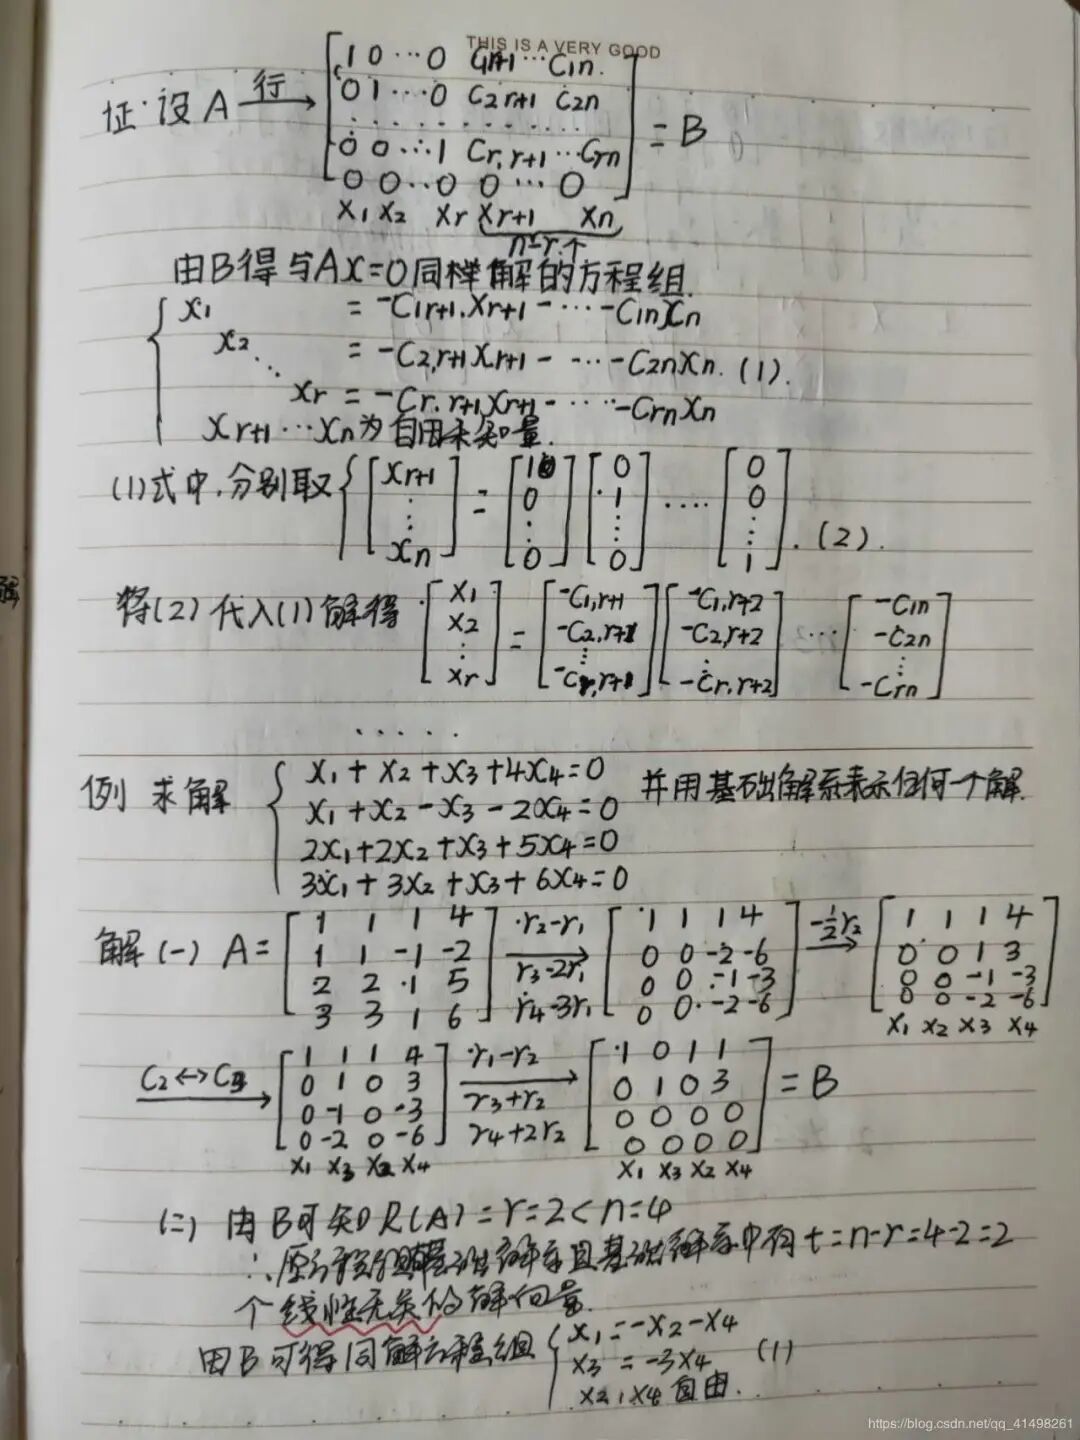 THIS IS A VERY GOOD
证. 设 A —行→ [1 0 ⋯ 0 C1r+1 ⋯ C1n
0 1 ⋯ 0 C2r+1 C2n
⋯⋯⋯⋯
0 0 ⋯ 1 Cr,r+1 ⋯ Crn
0 0 ⋯ 0 0 ⋯ 0] = B
x1 x2 xr xr+1 xn
n-r个
由B得与AX=0同样解的方程组.
x1 = -C1r+1.xr+1 - ⋯ -C1nxn
x2 = -C2,r+1xr+1 - ⋯ -C2nxn. (1).
⋱ xr = -Cr.r+1xr+1 - ⋯ -Crnxn
xr+1 ⋯ xn为自由未知量.
(1)式中,分别取{[xr+1 ⋮ xn] = [1 0 ⋮ 0] [0 1 ⋮ 0] ⋯ [0 0 ⋮ 1]. (2).
将(2)代入(1)解得 [x1 x2 ⋮ xr] = [-C1,r+1 -C2,r+1 ⋮ -Cr,r+1] [-C1,r+2 -C2,r+2 ⋮ -Cr,r+2] ⋯ [-C1n -C2n ⋮ -Crn]
⋯⋯
例 求解 { x1+x2+x3+4x4=0 并用基础解系表示任何一个解.
x1+x2-x3-2x4=0
2x1+2x2+x3+5x4=0
3x1+3x2+x3+6x4=0
解(一) A= [1 1 1 4
1 1 -1 -2
2 2 1 5
3 3 1 6]
r2-r1
r3-2r1
r4-3r1
[1 1 1 4
0 0 -2 -6
0 0 -1 -3
0 0 -2 -6]
-1/2r2
[1 1 1 4
0 0 1 3
0 0 -1 -3
0 0 -2 -6]
x1 x2 x3 x4
C2↔C3
[1 1 1 4
0 1 0 3
0 -1 0 -3
0 -2 0 -6]
x1 x3 x2 x4
r1-r2
r3+r2
r4+2r2
[1 0 1 1
0 1 0 3
0 0 0 0
0 0 0 0] = B
x1 x3 x2 x4
(二) 由B可知R(A)=r=2<n=4
∴原方程组 基础解系且基础解系中有t=n-r=4-2=2
个线性无关的解向量.
由B可得同解方程组 { x1=-x2-x4 (1)
x3 = -3x4
x2,x4自由.
https://blog.csdn.net/qq_41498261